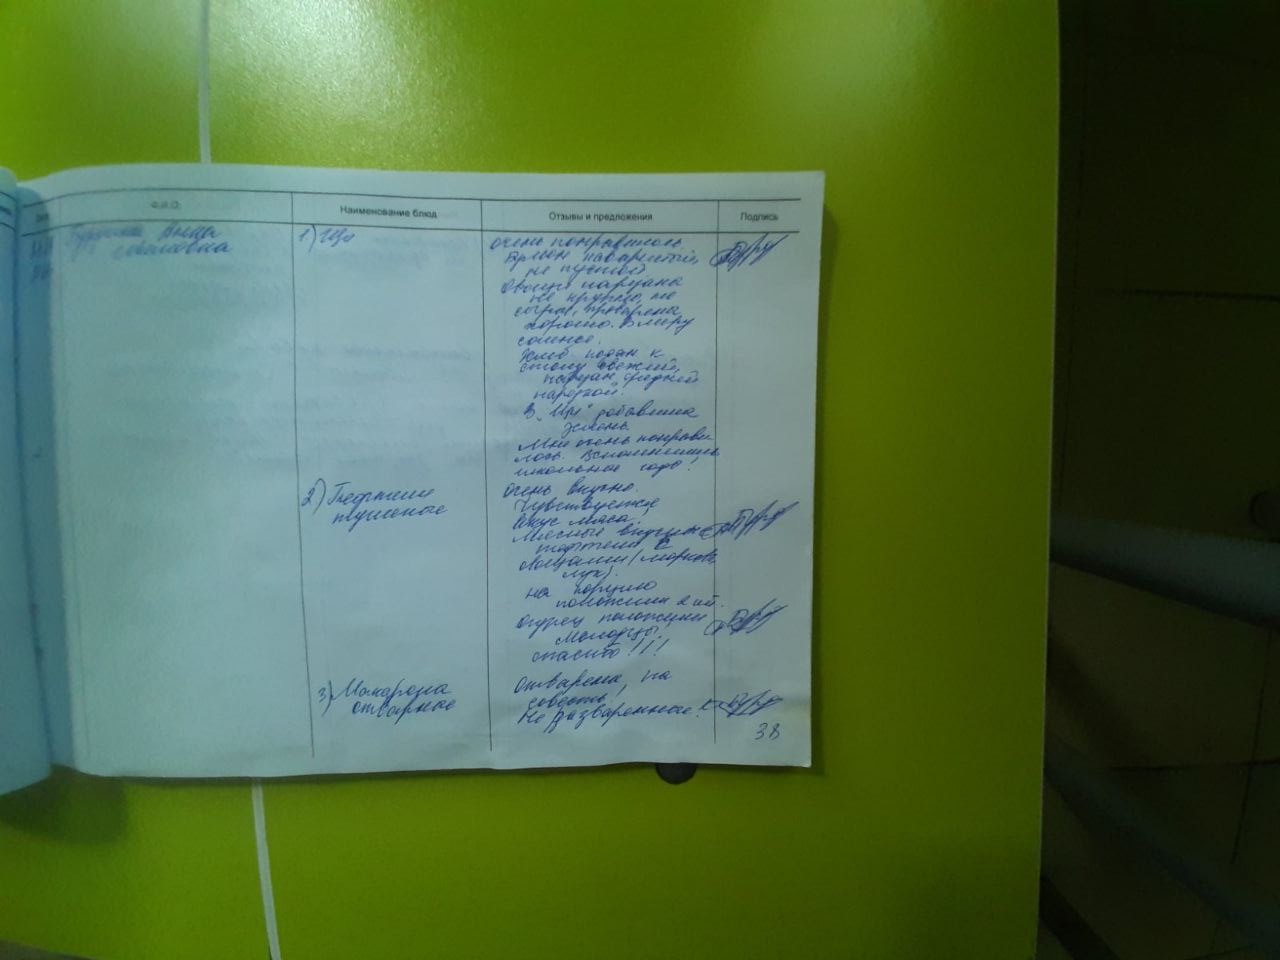 Ф.И.О.
Наименование блюд
Отзывы и предложения
Подпись
1) Щи
очень понравились.
Бульон наваристый,
не пустой
Овощи нарезаны
не крупно, не
сырые, проварены
хорошо. В меру
соленое.
Хлеб подан к
столу свежий,
нарезан средней
нарезкой.
В "Щи" добавлена
зелень
Мне очень понрави
лось. Вспомнились
школьные годы!
2) Тефтели
тушеные
очень вкусно.
Чувствуется
вкус мяса.
Мясные вкусные
тефтели с
овощами (морковь
лук).
на порцию
положили 2 шт.
огурец положили
Молодцы
спасибо!!!
3) Макароны
отварные
отварены, на
совесть,
не разваренные.
38